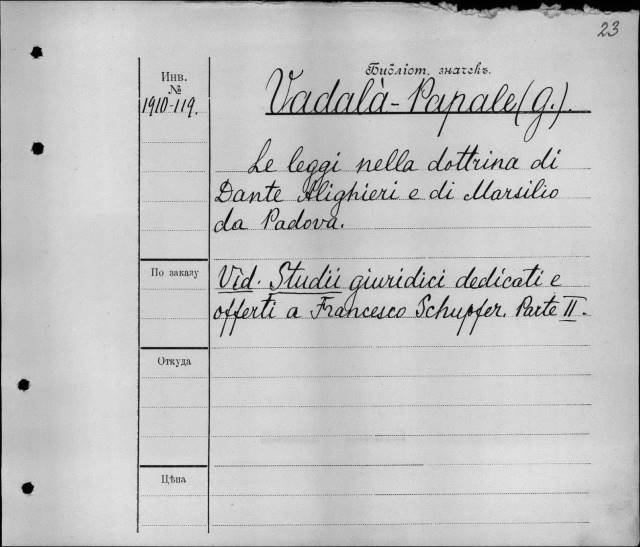 23
Библіот. значекъ.
Инв.
№
1910-119.
Vadalà-Papale (G.).
Le leggi nella dottrina di
Dante Alighieri e di Marsilio
da Padova.
По заказу
Vid. Studii giuridici dedicati e
offerti a Francesco Schupfer. Parte II.
Откуда
Цѣна